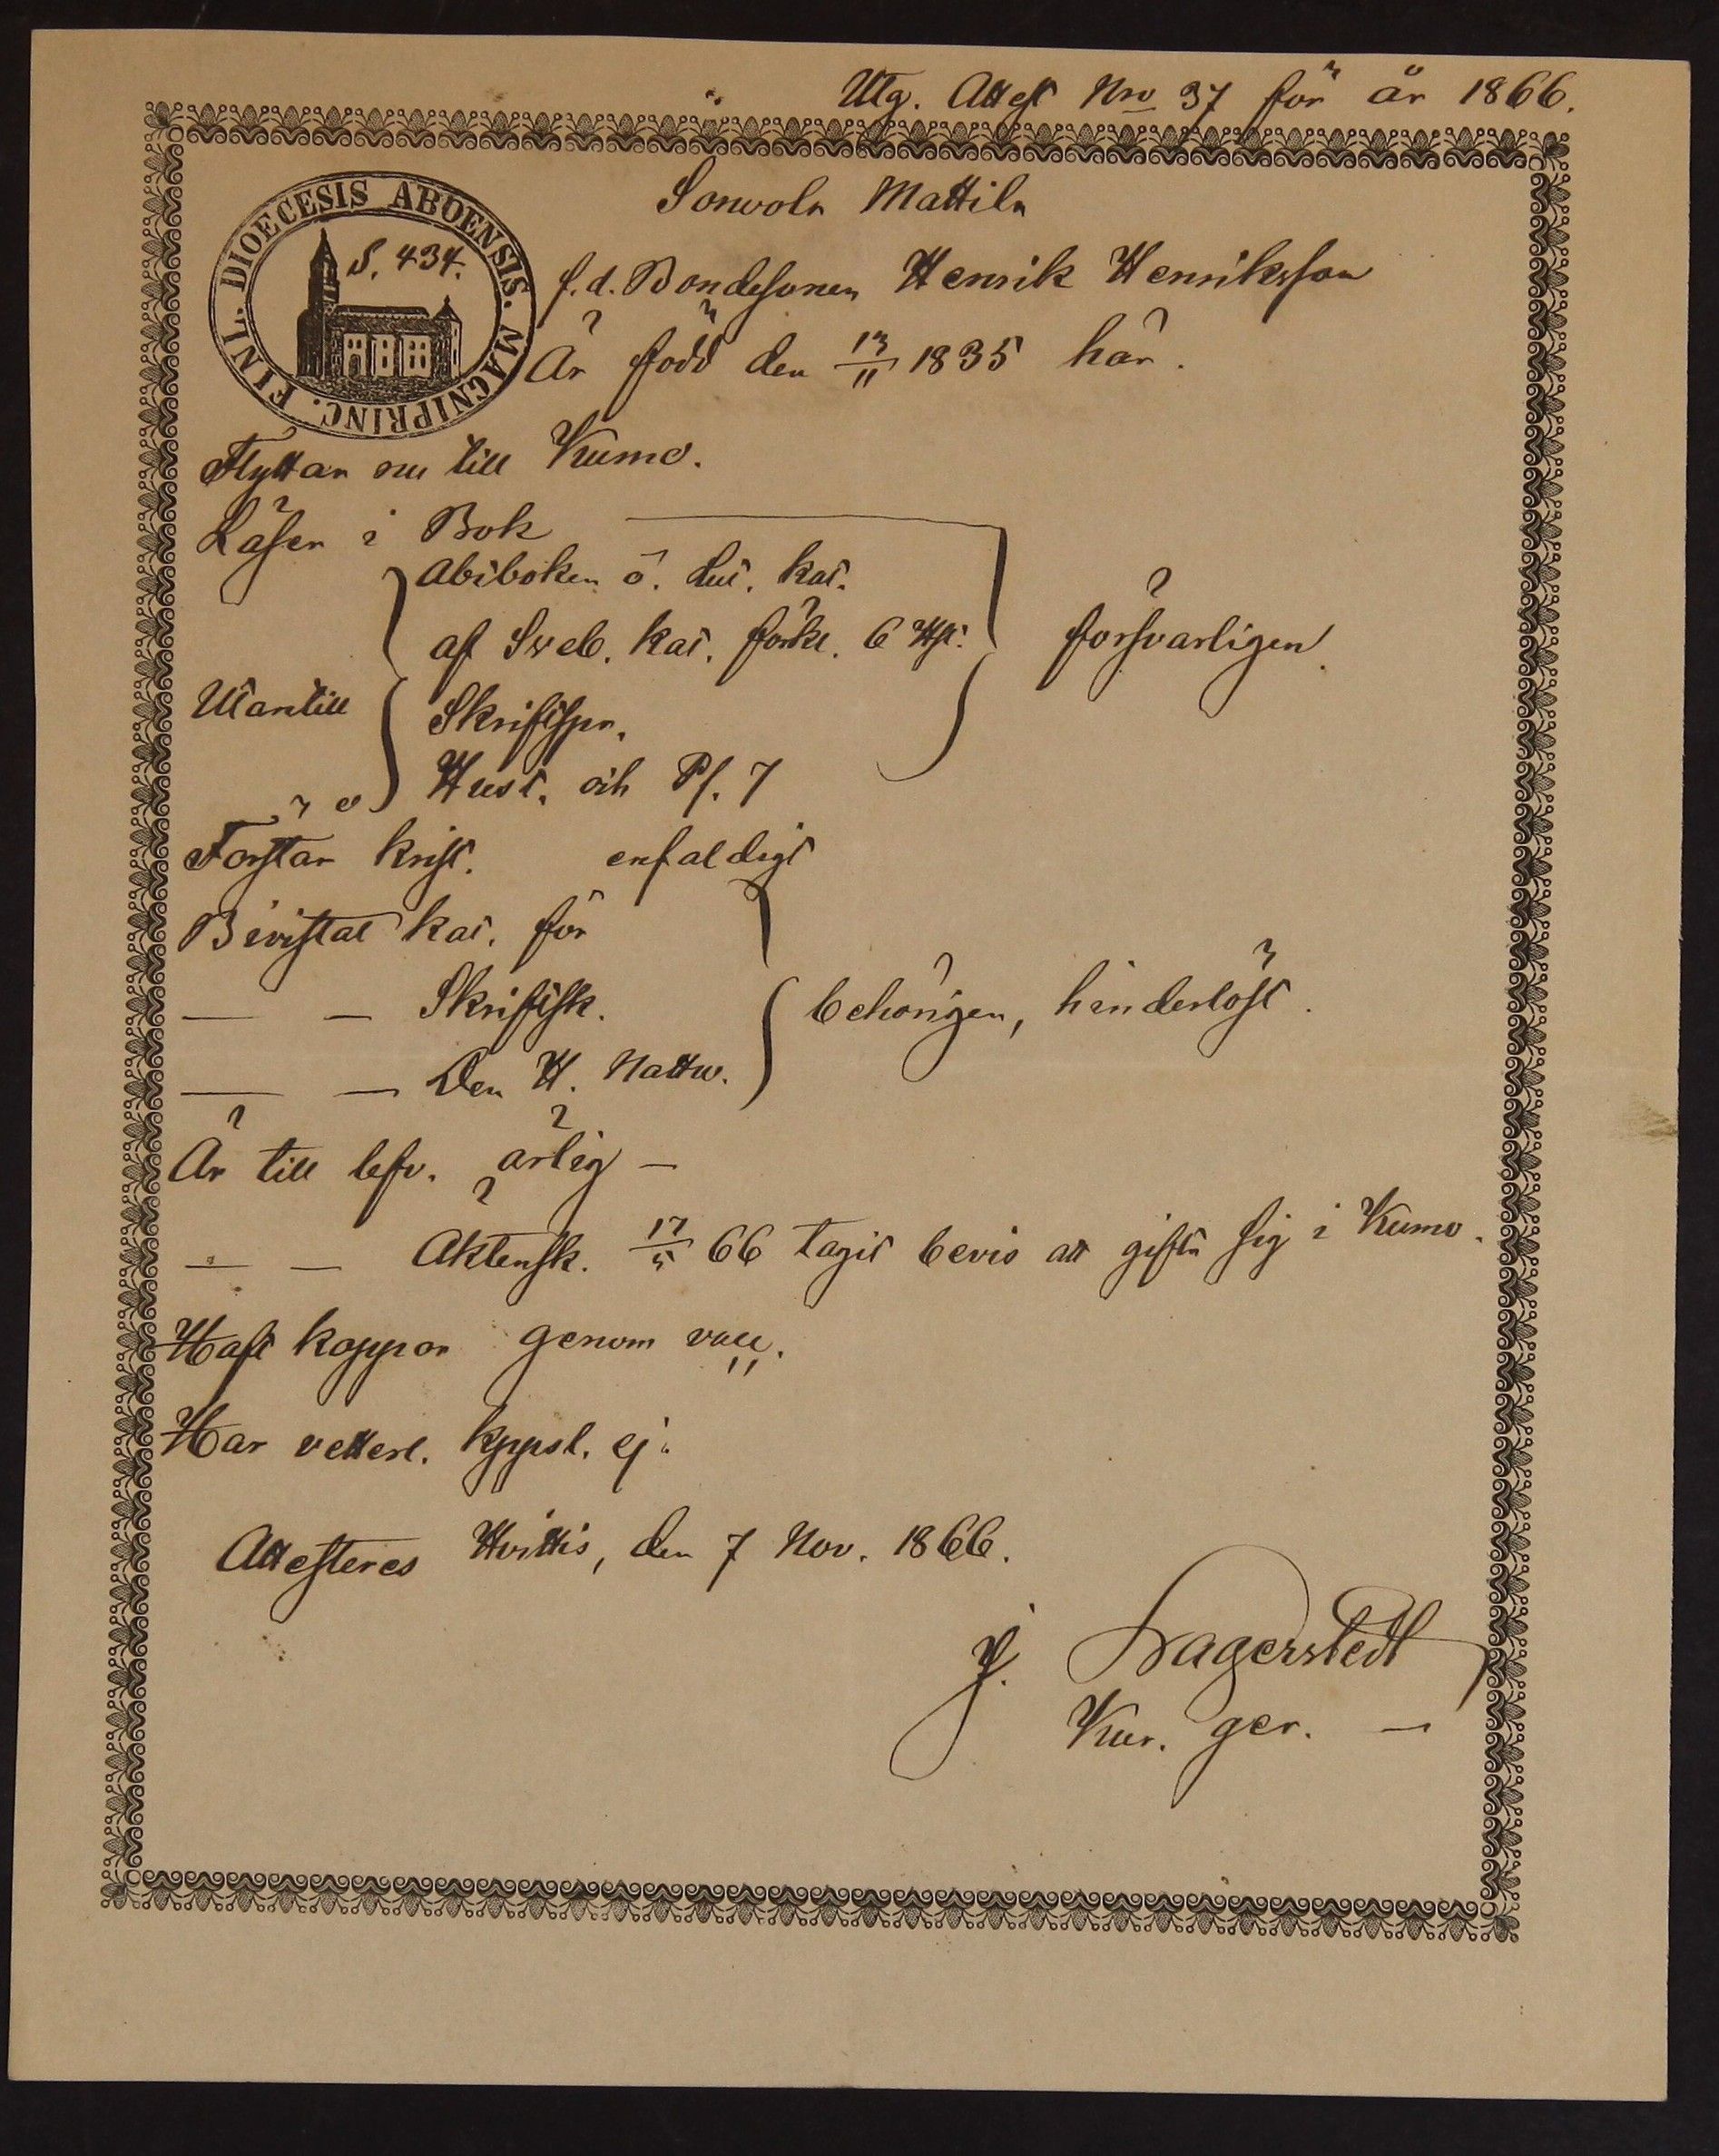 Utg. Attest Nro 37 för år 1866.
DIOECESIS ABOENSIS. MAGNIPRINC. FINL.
S. 434.
Sonvola Mattila
f. d. Bondesonen Henrik Henriksson
Är född den 13/11 1835 här.
Flyttar nu till Kumo.
Läser i Bok
Abiboken o. Lut. kat.
af Sveb. kat. förkl. 6 Hst. försvarligen.
Utantill
Skriftspr.
Hust. och Ps. 7
Förstår krist. enfaldigt
Bivistat kat. för
— — Skriftsk. behörigen, hinderlöst.
— — Den H. Nattw.
Är till lefv. ärlig —
— — Äktensk. 17/5 66 tagit bevis att gifta sig i Kumo.
Haft koppor genom vacc.
Har vetterl. kyppsl. ej.
Attesteres Hvittis, den 7 Nov. 1866.
J. Lagerstedt
Kur. ger. —